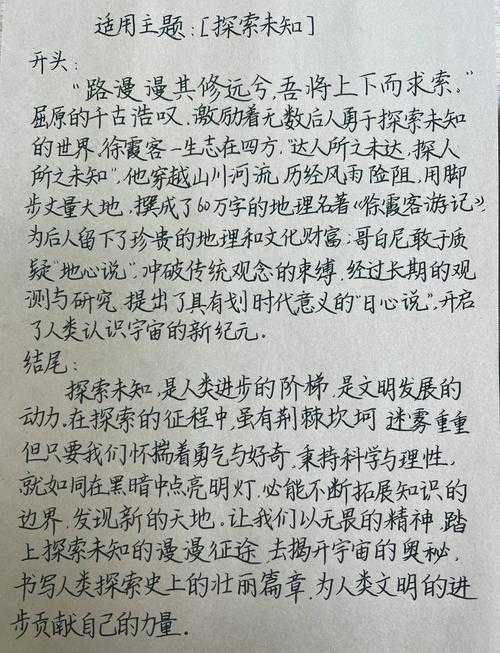 适用主题:[探索未知]
开头:
“路漫漫其修远兮,吾将上下而求索。”
屈原的千古浩叹,激励着无数后人勇于探索未知
的世界.徐霞客一生志在四方,“达人所之未达,探人
所之未知”,他穿越山川河流,历经风雨险阻,用脚
步丈量大地,撰成了60万字的地理名著《徐霞客游记》,
为后人留下了珍贵的地理和文化财富;哥白尼敢于质
疑“地心说”,冲破传统观念的束缚.经过长期的观
测与研究,提出了具有划时代意义的“日心说”,开启
了人类认识宇宙的新纪元.
结尾:
探索未知,是人类进步的阶梯,是文明发展的
动力.在探索的征程中,虽有荆棘坎坷,迷雾重重
但只要我们怀揣着勇气与好奇,秉持科学与理性,
就如同在黑暗中点亮明灯,必能不断拓展知识的
边界,发现新的天地.让我们以无畏的精神,踏
上探索未知的漫漫征途,去揭开宇宙的奥秘,
书写人类探索史上的壮丽篇章,为人类文明的进
步贡献自己的力量.